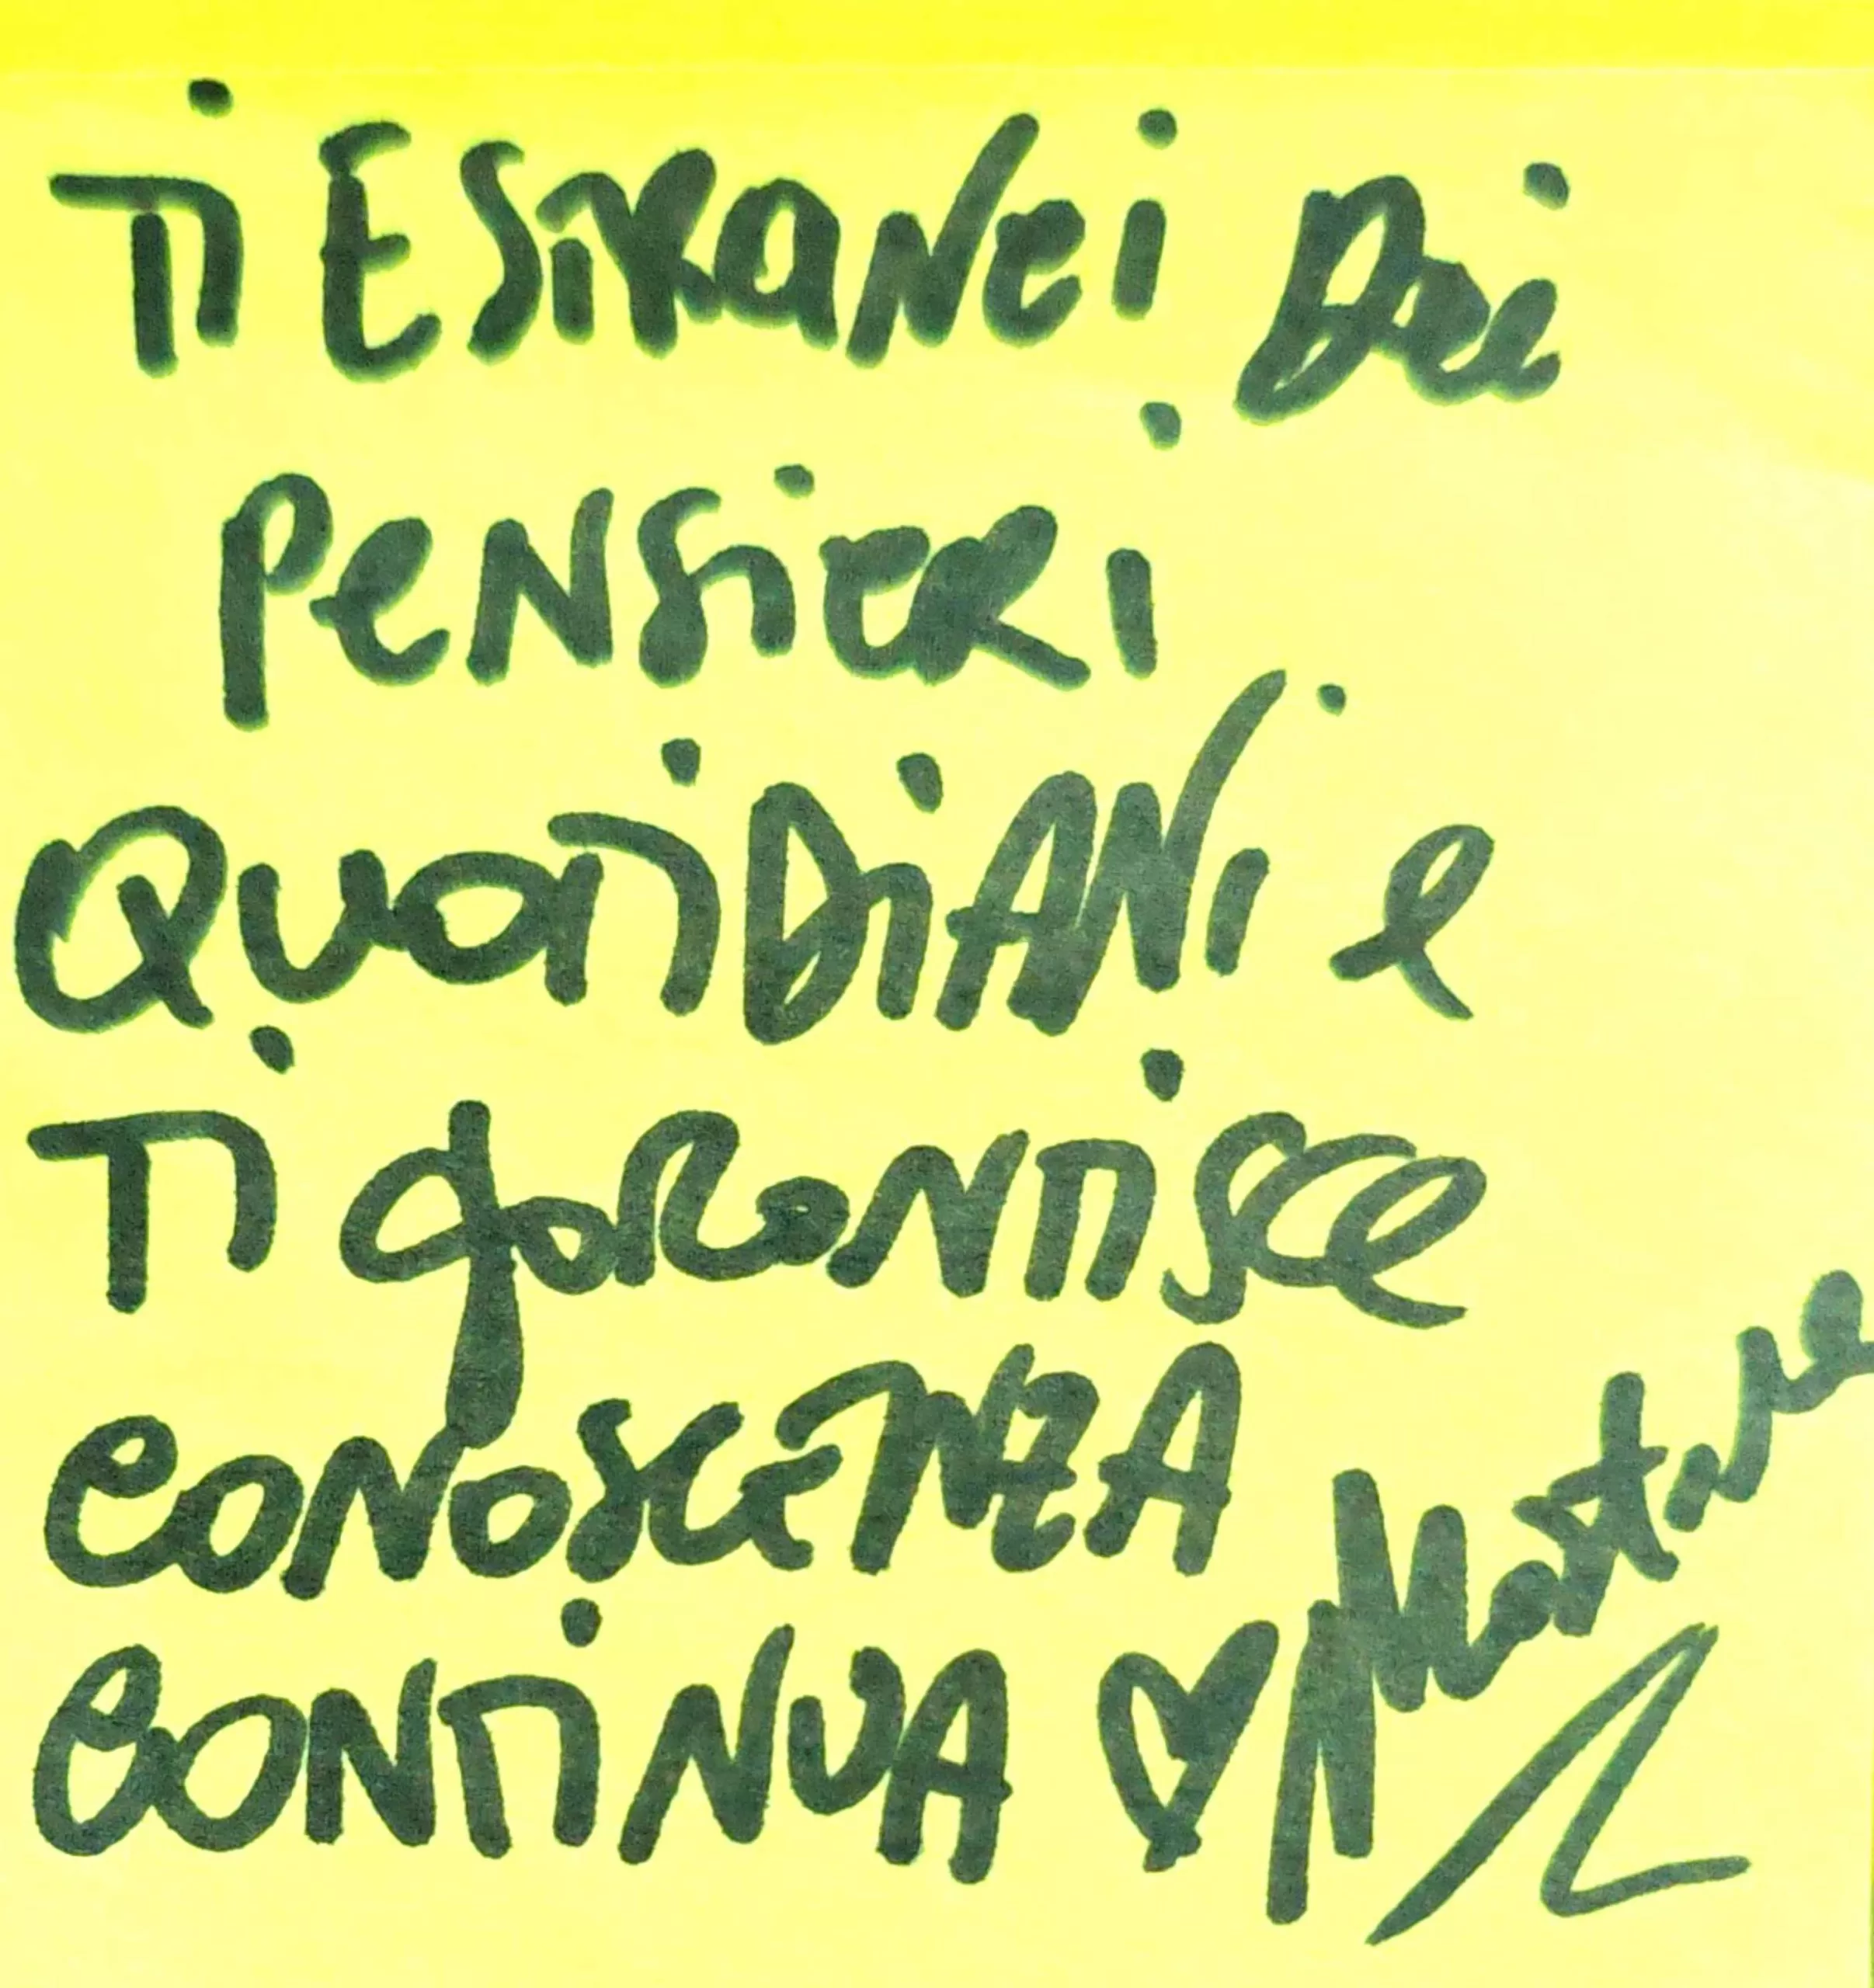 Ti ESTRANEI Dai
PENSIERI
QUOTIDIANI e
Ti gARANTISCE
CONOSCENZA
CONTINUA ♡